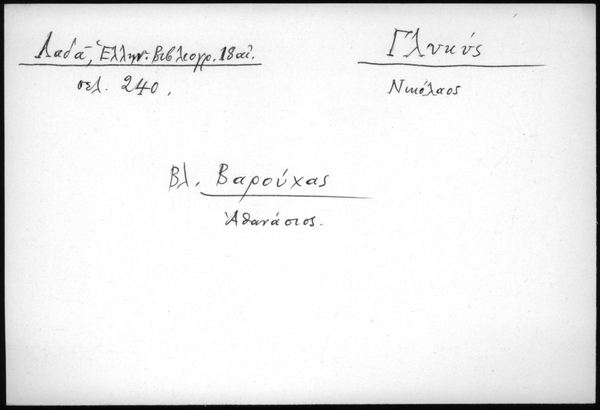 Λαδᾶ, Ἑλλην. Βιβλιογρ. 18 αἰ.
σελ. 240.
Γλυκύς
Νικόλαος
Βλ. Βαρούχας
Ἀθανάσιος.